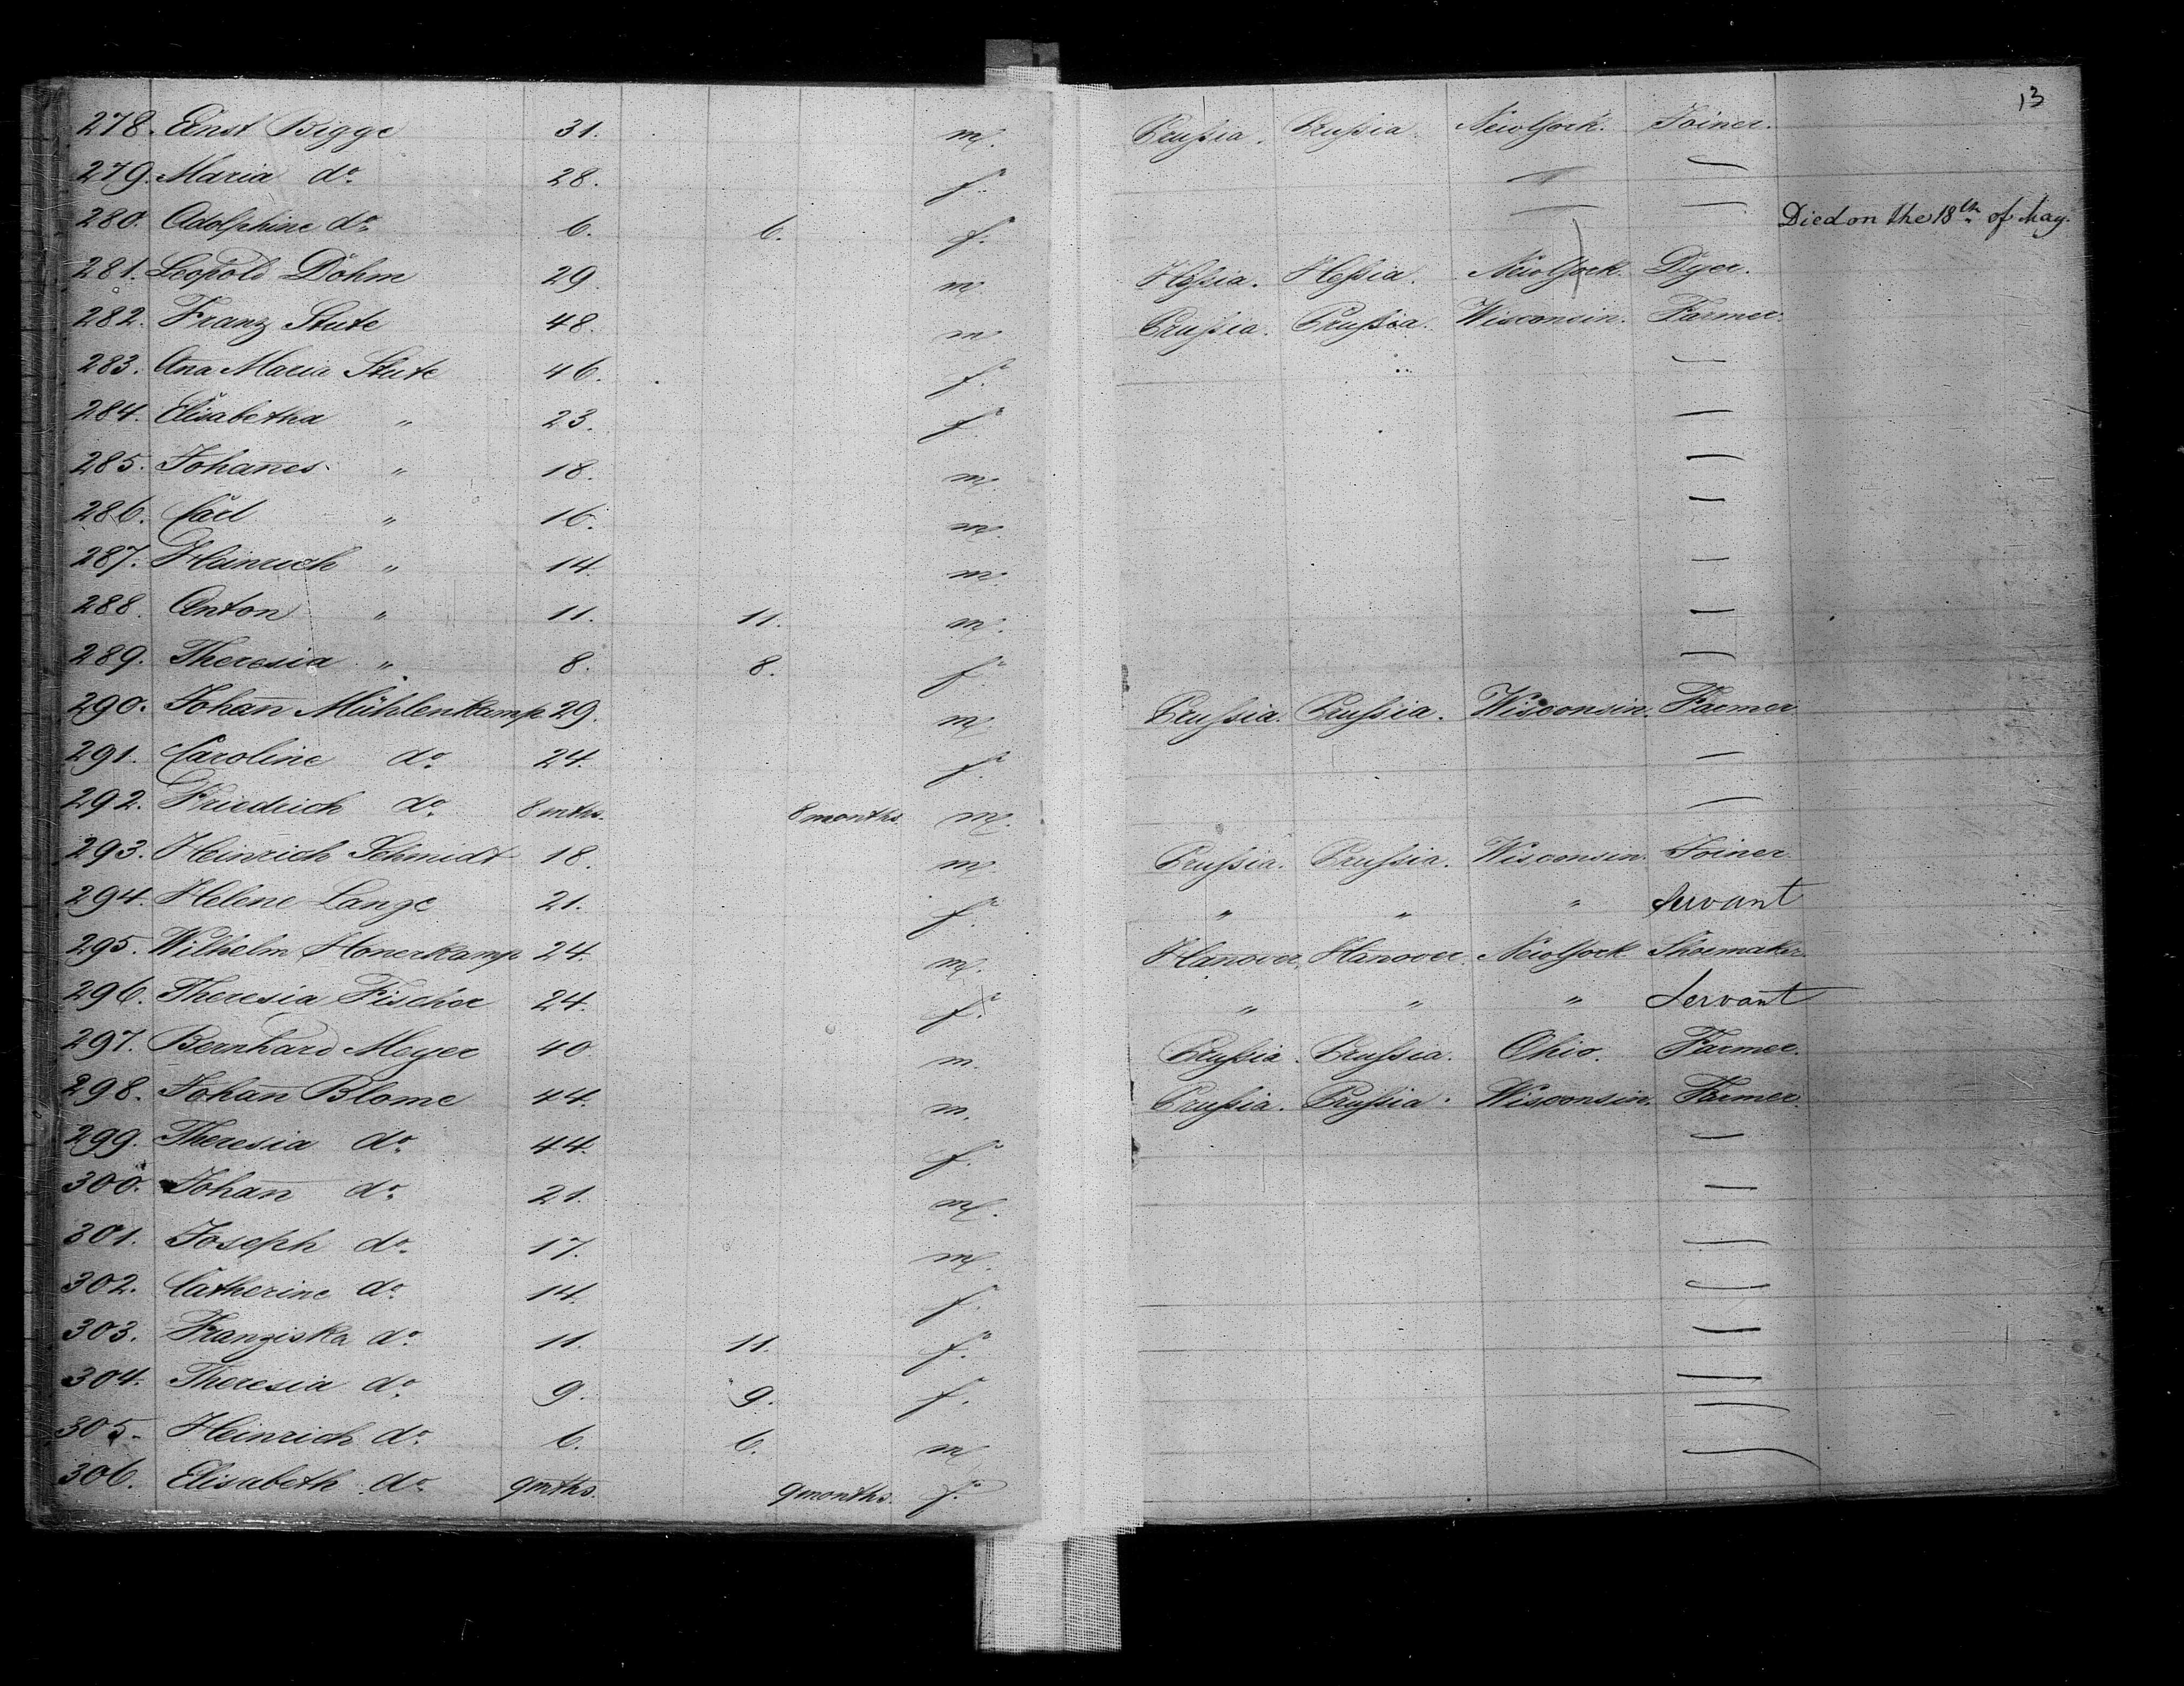 13
278. Ernst Bigge 31. m. Prußia. Prußia. New York. Joiner.
279. Maria do. 28. f. — —
280. Adolphine do. 6. 6. f. — — Died on the 18th of May.
281. Leopold Döhm 29. m. Heßia. Heßia. New York. Dyer.
282. Franz Stute 48. m. Prußia. Prußia. Wisconsin. Farmer.
283. Ana Maria Stute 46. f. —
284. Elisabetha " 23. f. —
285. Johanes " 18. m. —
286. Carl " 16. m. —
287. Heinrich " 14. m. —
288. Anton " 11. 11. m. —
289. Theresia " 8. 8. f. —
290. Johan̅ Mühlenkamp 29. m. Prußia. Prußia. Wisconsin. Farmer
291. Caroline do. 24. f. —
292. Friedrich do. 8 mths. 8 months. m. —
293. Heinrich Schmidt 18. m. Prußia. Prußia. Wisconsin. Joiner.
294. Helene Lange 21. f. " " " Servant
295. Wilhelm Honerkamp 24. m. Han̅over. Han̅over. New York Shoemaker.
296. Theresia Fischer 24. f. " " " Servant
297. Bernhard Meyer 40 m. Prußia. Prußia. Ohio. Farmer.
298. Johan̅ Blome 44. m. Prußia. Prußia. Wisconsin. Farmer.
299. Theresia do. 44. f. —
300. Johan̅ do. 21. m. —
301. Joseph do. 17. m. —
302. Catherine do. 14. f. —
303. Franziska do. 11. 11. f. —
304. Theresia do. 9. 9. f. —
305. Heinrich do. 6. 6. m. —
306. Elisabeth do. 9 mths. 9 months. f. —